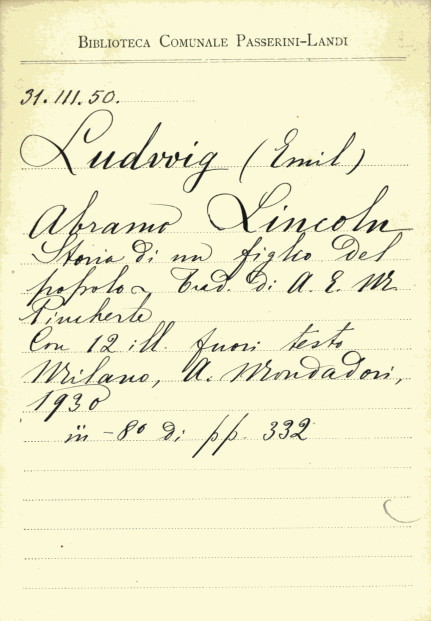 BIBLIOTECA COMUNALE PASSERINI-LANDI
31.III.50.
Ludwig (Emil)
Abramo Lincoln
Storia di un figlio del
popolo ~ Trad. di A. E. M.
Pincherle
Con 12 ill. fuori testo
Milano, A. Mondadori,
1930
in -8º di pp. 332